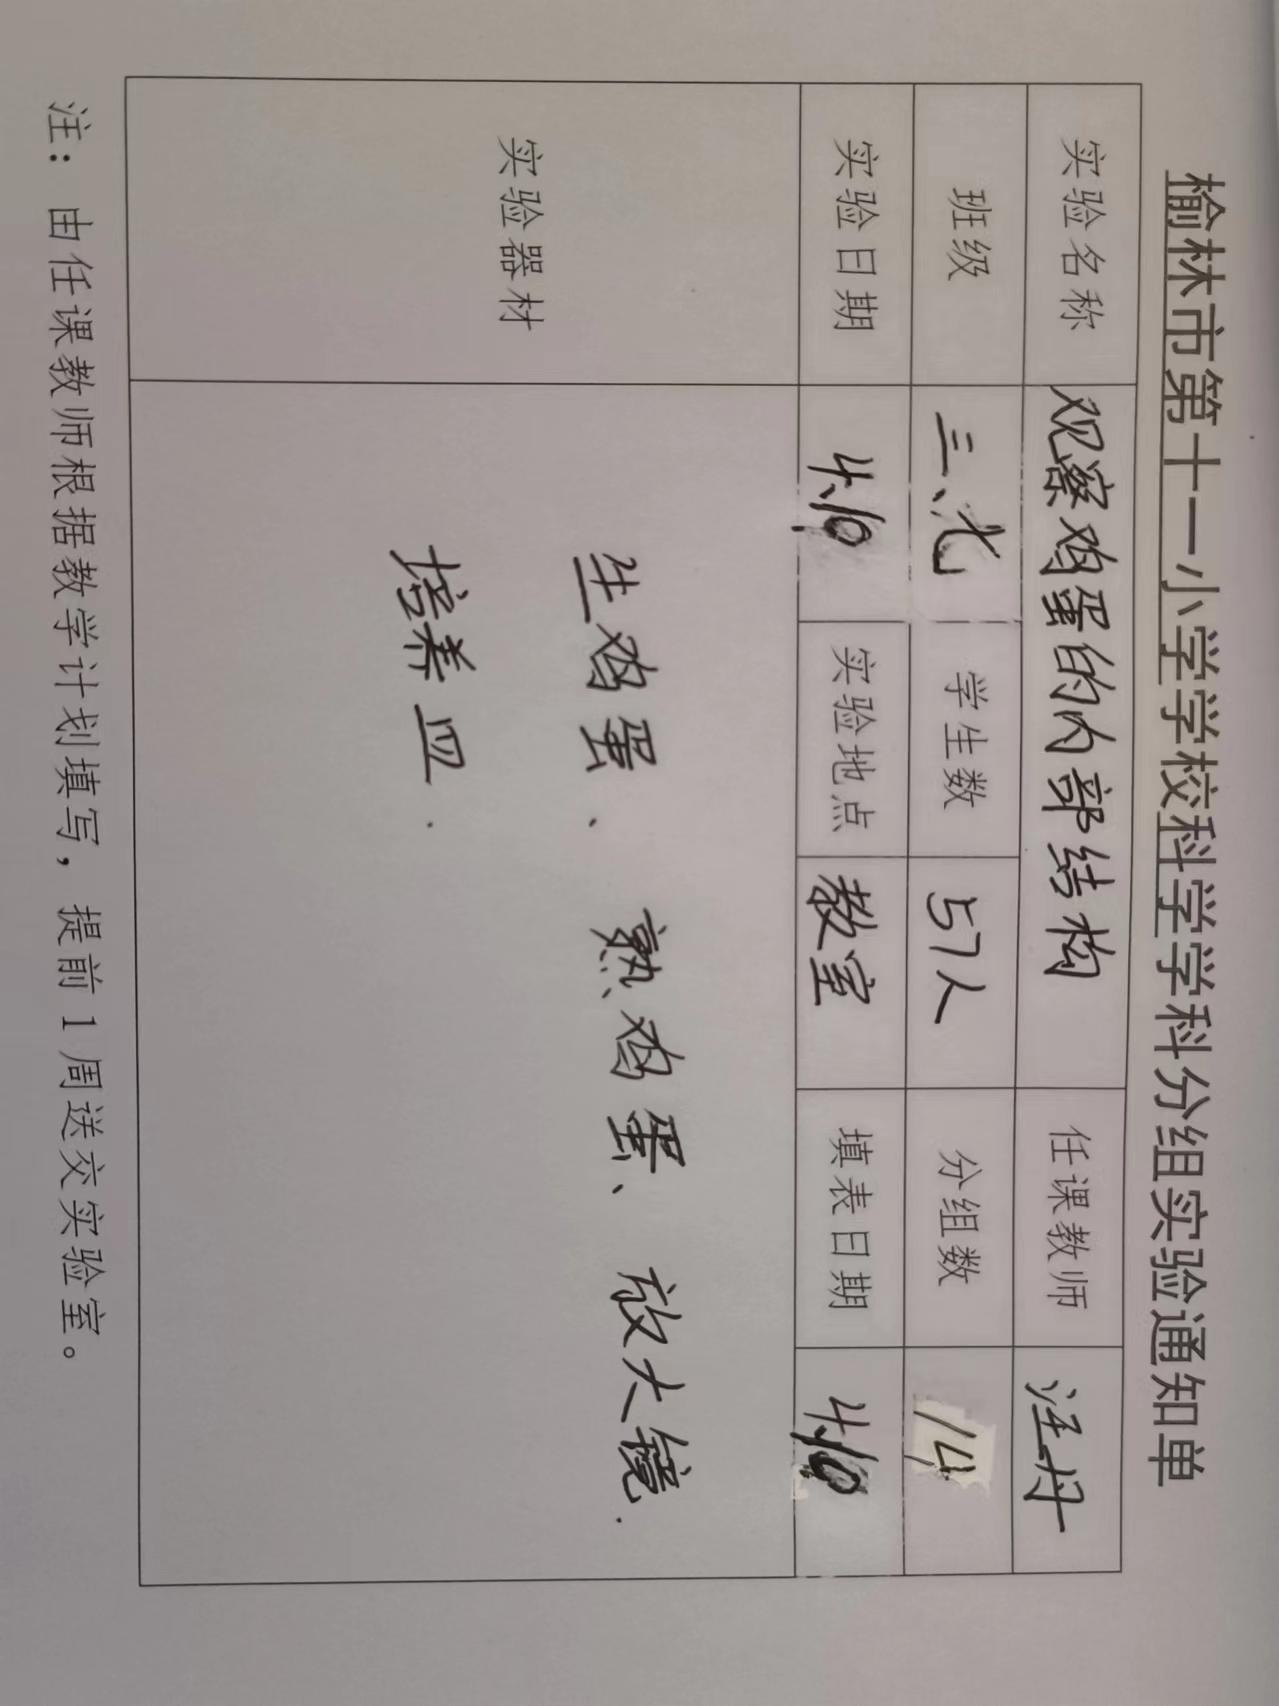 榆林市第十一小学学校科学学科分组实验通知单
实验名称 观察鸡蛋的内部结构 任课教师 汪丹
班级 三、七 学生数 57人 分组数 14
实验日期 实验地点 教室 填表日期
实验器材 生鸡蛋、熟鸡蛋、放大镜.
培养皿.
注：由任课教师根据教学计划填写，提前1周送交实验室。